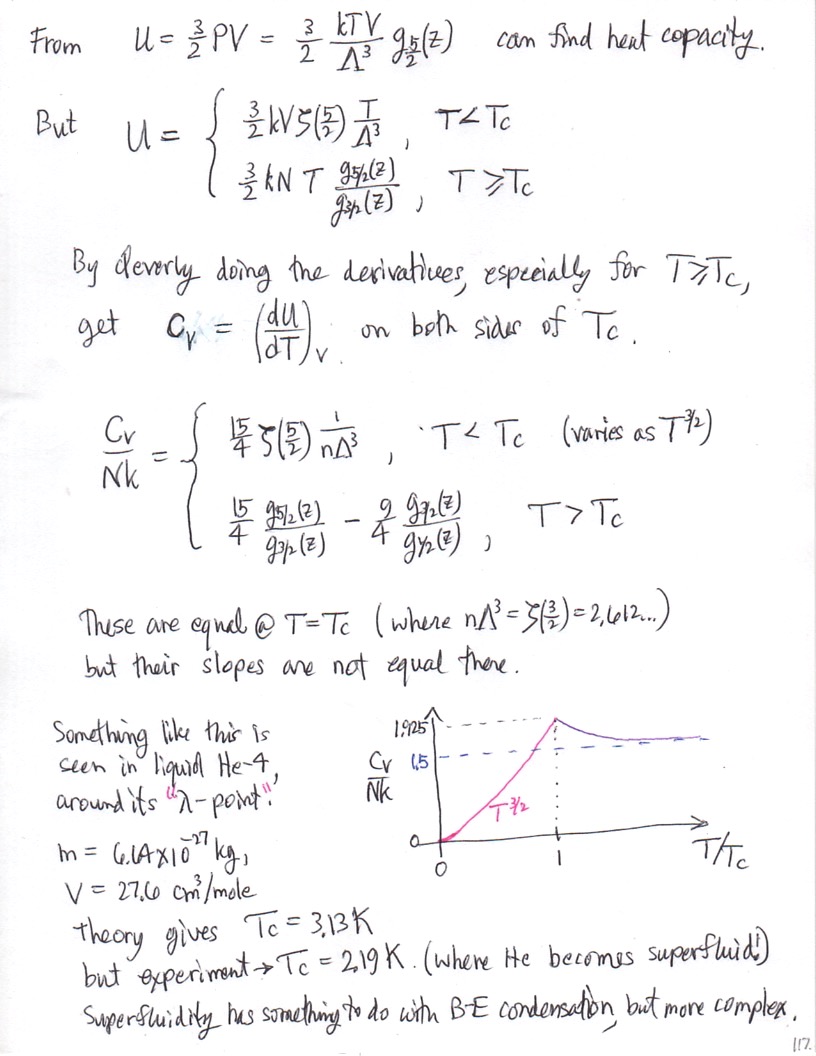 From U = 3/2 PV = 3/2 kTV/Λ³ g5/2(z) can find heat capacity.
But U = { 3/2 kV ζ(5/2) T/Λ³ , T < Tc
3/2 kN T g5/2(z)/g3/2(z) , T ⩾ Tc
By cleverly doing the derivatives, especially for T ⩾ Tc,
get Cv = (dU/dT)v on both sides of Tc.
Cv/Nk = { 15/4 ζ(5/2) 1/nΛ³ , T < Tc (varies as T^3/2)
15/4 g5/2(z)/g3/2(z) − 9/4 g3/2(z)/g1/2(z) , T > Tc
These are equal @ T=Tc (where nΛ³ = ζ(3/2) = 2.612...)
but their slopes are not equal there.
Something like this is
seen in liquid He-4,
around its "λ-point".
m = 6.64×10^-27 kg,
V = 27.6 cm³/mole
1.925
Cv/Nk 1.5
T^3/2
0
0 1 T/Tc
theory gives Tc = 3.13 K
but experiment → Tc = 2.19 K. (where He becomes superfluid!)
Superfluidity has something to do with B-E condensation, but more complex.
117.